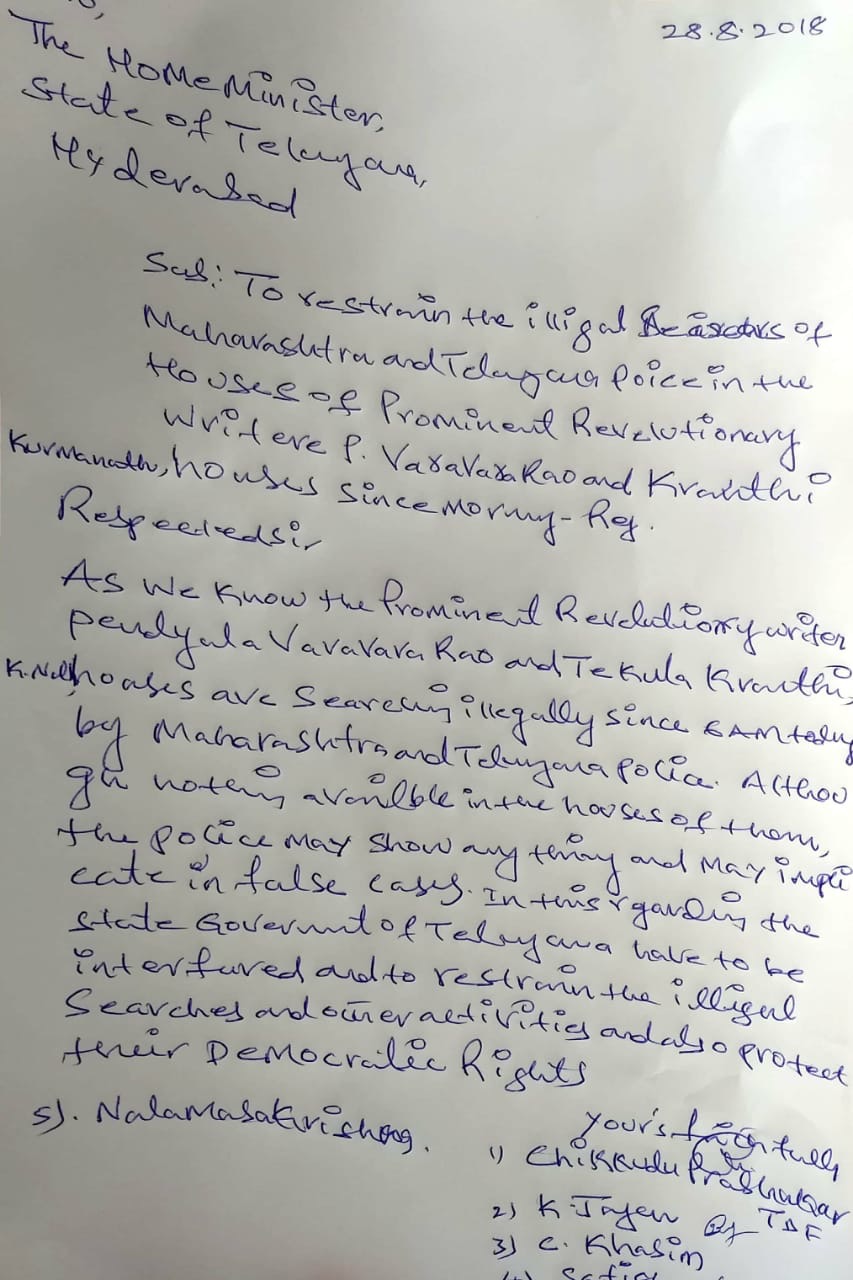 28.8.2018
The Home Minister,
State of Telugana,
Hyderabad
Sub: To restrain the illigal of
Maharashtra and Telugana Poice in the
Houses of Prominent Revelutionary
Writere P. VaraVara Rao and Kranthi
Kurmanath, houses since Morning - Reg.
Respected sir
As we know the Prominent Revelutionry writer
Pendyala Varavara Rao and Tekula Kranthi,
houses are Searcing illegally since 6 AM today
by Maharashtra and Telugana police. Althou
gh nothing availble in the houses of them,
the police may show any thing and may impli
cate in false cases. In this rgarding the
state Governmt of Telugana have to be
interfured and to restrain the illigal
Searches and other activities and also protect
their Democratic Rights
5). Nalamasa Krishna.
your's faithfully
1) Chikkudu Prabhakar
2) K. Of TDF
3) C. Khasim